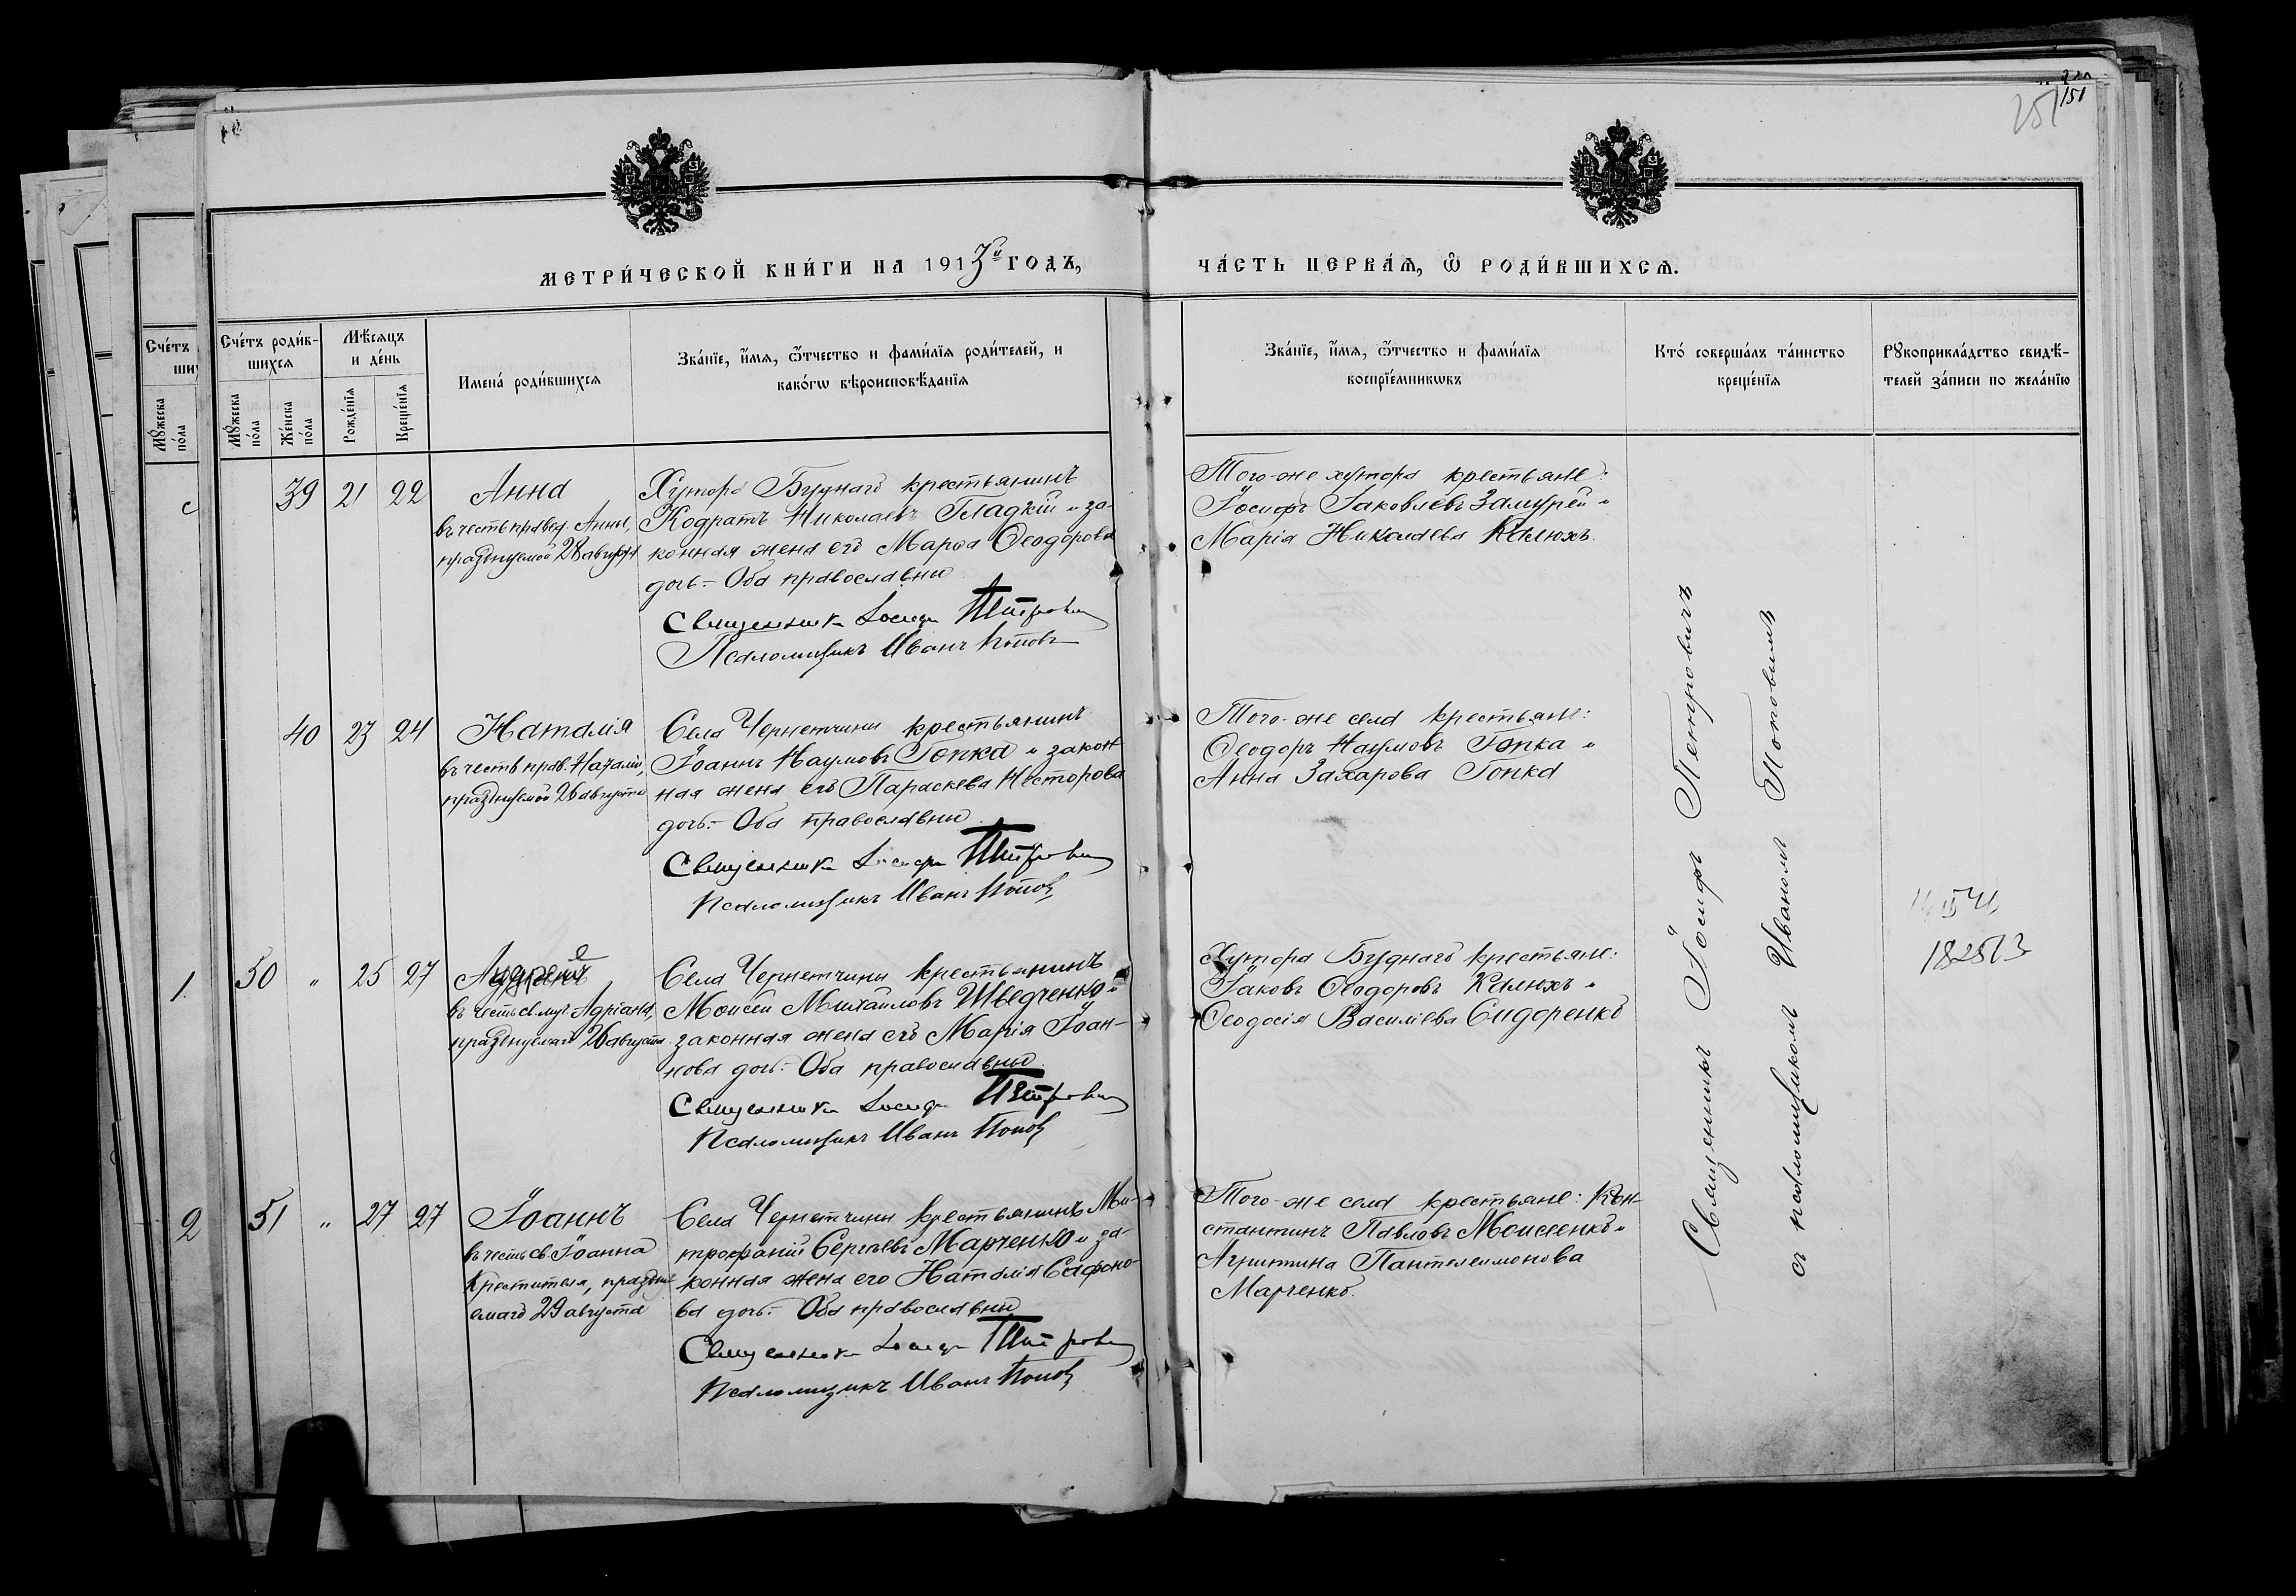 151
251
МЕТРИ́ЧЕСКОЙ КНИ́ГИ НА 1913й ГОДЪ,
ЧА́СТЬ ПЕРВА́Ѧ, Ѽ РОДИ́ВШИХСѦ.
Сче́тъ
Мꙋ́жеска по́ла
Сче́тъ роди́в-
шихсѧ
Мꙋ́жеска по́ла
Же́нска по́ла
Мѣ́сѧцъ
и де́нь
Рожде́нїѧ
Креще́нїѧ
Имена̀ роди́вшихсѧ
Зва́нїе, и҆́мѧ, ѻ҆́тчество и фами́лїѧ роди́телей, и
како́гѡ вѣроисповѣ́данїѧ
Зва́нїе, и҆́мѧ, ѻ҆́тчество и фами́лїѧ
воспрїе́мникѡвъ
Кто́ соверша́лъ та́инство
креще́нїѧ
Рꙋкоприкла́дство свидѣ́-
телей за́писи по жела́нїю
39 21 22
Анна
въ честь правед. Анны,
празднуемой 28 августа
Хутора Буднаго крестьянинъ
Кодратъ Николаевъ Гладкій и за-
конная жена его Марѳа Ѳеодорова
дочь.- Оба православны
Священникъ Іосифъ Петровичъ
Псаломщикъ Иванъ Поповъ
Того-же хутора крестьяне:
Іосифъ Іаковлевъ Замурей и
Марія Николаева Калюхъ.
40 23 24
Наталія
въ честь прав. Наталіи,
празднуемой 26 августа
Села Чернетчины крестьянинъ
Іоаннъ Наумовъ Гопка и закон-
ная жена его Параскева Несторова
дочь.- Оба православны
Священникъ Іосифъ Петровичъ
Псаломщикъ Иванъ Поповъ
Того-же села крестьяне:
Ѳеодоръ Наумовъ Гопка и
Анна Захарова Гопка
1 50 " 25 27
въ честь св. муч. Адріана,
празднуемаго 26 августа
Села Чернетчины крестьянинъ
Моисей Михайловъ Шведченко и
законная жена его Марія Іоан-
нова дочь.- Оба православны
Священникъ Іосифъ Петровичъ
Псаломщикъ Иванъ Поповъ
Хутора Буднаго крестьяне:
Іаковъ Ѳеодоровъ Калюхъ и
Ѳеодосія Василіева Сидоренко
182513
2 51 " 27 27
Іоаннъ
въ честь св. Іоанна
Крестителя, праздну-
емаго 29 августа
Села Чернетчины крестьянинъ Ми-
трофаній Сергѣевъ Марченко и за-
конная жена его Наталія Сафоно-
ва дочь.- Оба православны
Священникъ Іосифъ Петровичъ
Псаломщикъ Иванъ Поповъ
Того-же села крестьяне: Кон-
стантинъ Павловъ Моисеенко и
Агриппина Пантелеимонова
Марченко.
Священникъ Іосифъ Петровичъ
съ псаломщикомъ Иваномъ Поповымъ